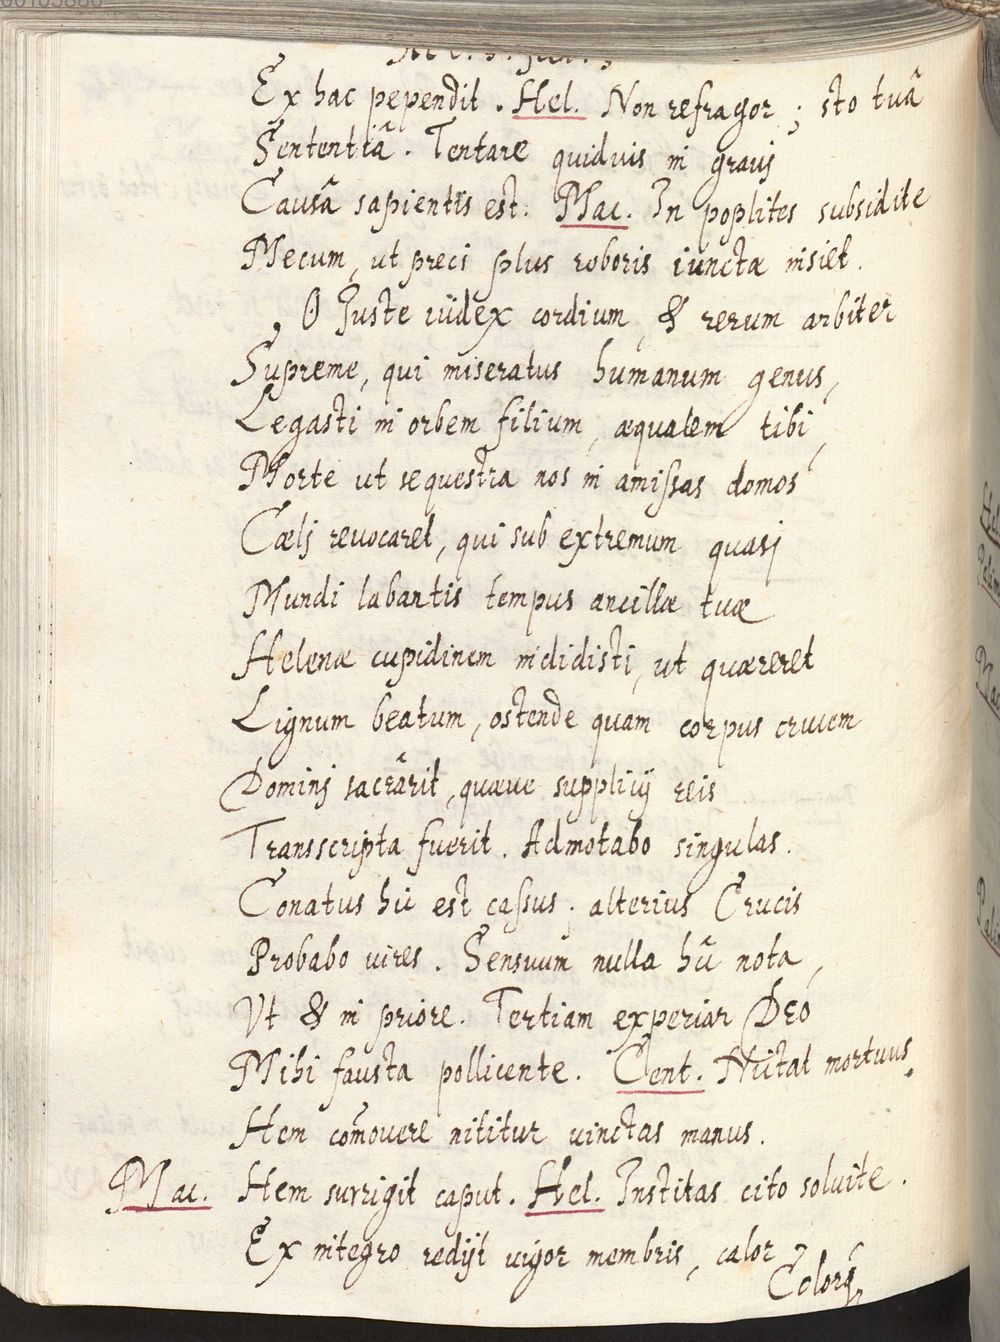 Ex hac pependit. Hel. Non refragor; sto tuâ
Sententiâ. Tentare quiduis in grauj
Causâ sapientis est. Mac. In poplites subsidite
Mecum, ut preci plus roboris iuncta insiet.
O Juste iudex cordium, & rerum arbiter
Supreme, qui miseratus humanum genus,
Legasti in orbem filium, æqualem tibi,
Morte ut sequestra nos in amissas domos
Cælj reuocaret, qui sub extremum quasj
Mundi labantis tempus ancillæ tuæ
Helenæ cupidinem indidisti, ut quæreret
Lignum beatum, ostende quam corpus crucem
Dominj sacrârit, quæue supplicij reis
Transscripta fuerit. Admotabo singulas.
Conatus hic est cassus. alterius Crucis
Probabo uires. Sensuum nulla hîc nota,
Vt & in priore. Tertiam experiar Deo
Mihi fausta pollicente. Cent. Nictat mortuus.
Hem com̄ouere nititur uinctas manus.
Mac. Hem surrigit caput. Hel. Institas cito soluite.
Ex integro redijt uigor membris, calor
Colorq